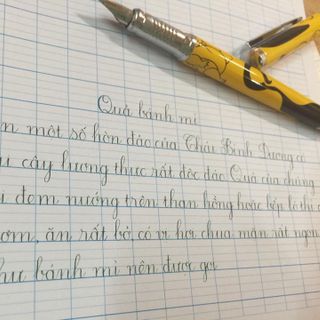 Quả bánh mì
một số hòn đảo của Thái Bình Dương có
cây lương thực rất độc đáo Quả của chúng
đem nướng trên than hồng hoặc bếp lò thì
ơm, ăn rất bở, có vị hơi chua mặn rất ngon
bánh mì nên được gọi